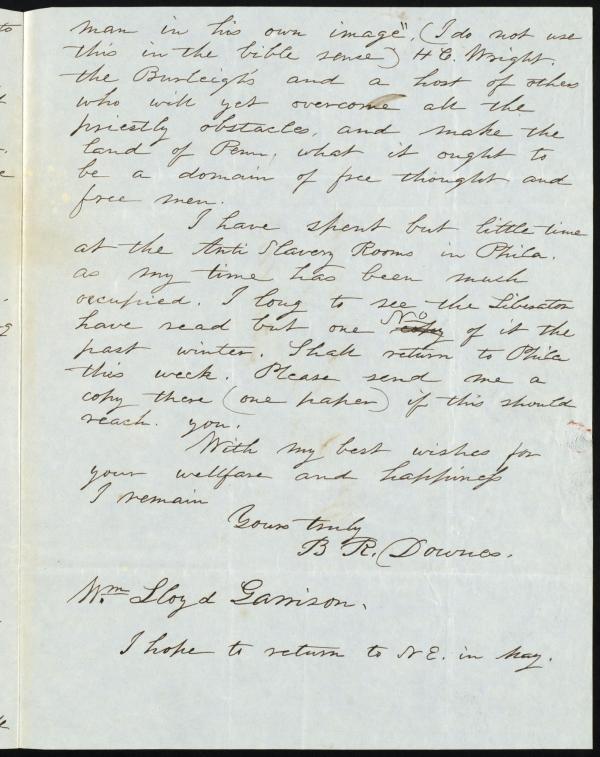 man in his own image", (I do not use
this in the bible sense) H C. Wright.
the Burleigh's and a host of others
who will yet overcome all the
priestly obstacles, and make the
land of Penn, what it ought to
be a domain of free thought and
free men.
I have spent but little time
at the Anti Slavery Rooms in Phila.
as my time has been much
occupied. I long to see the Liberator
have read but one No copy of it the
past winter. Shall return to Phila
this week. Please send me a
copy there (one paper) if this should
reach. you.
With my best wishes for
your wellfare and happiness
I remain
Yours truly
B R. Downes.
Wm Lloyd Garrison.
I hope to return to N E. in May.